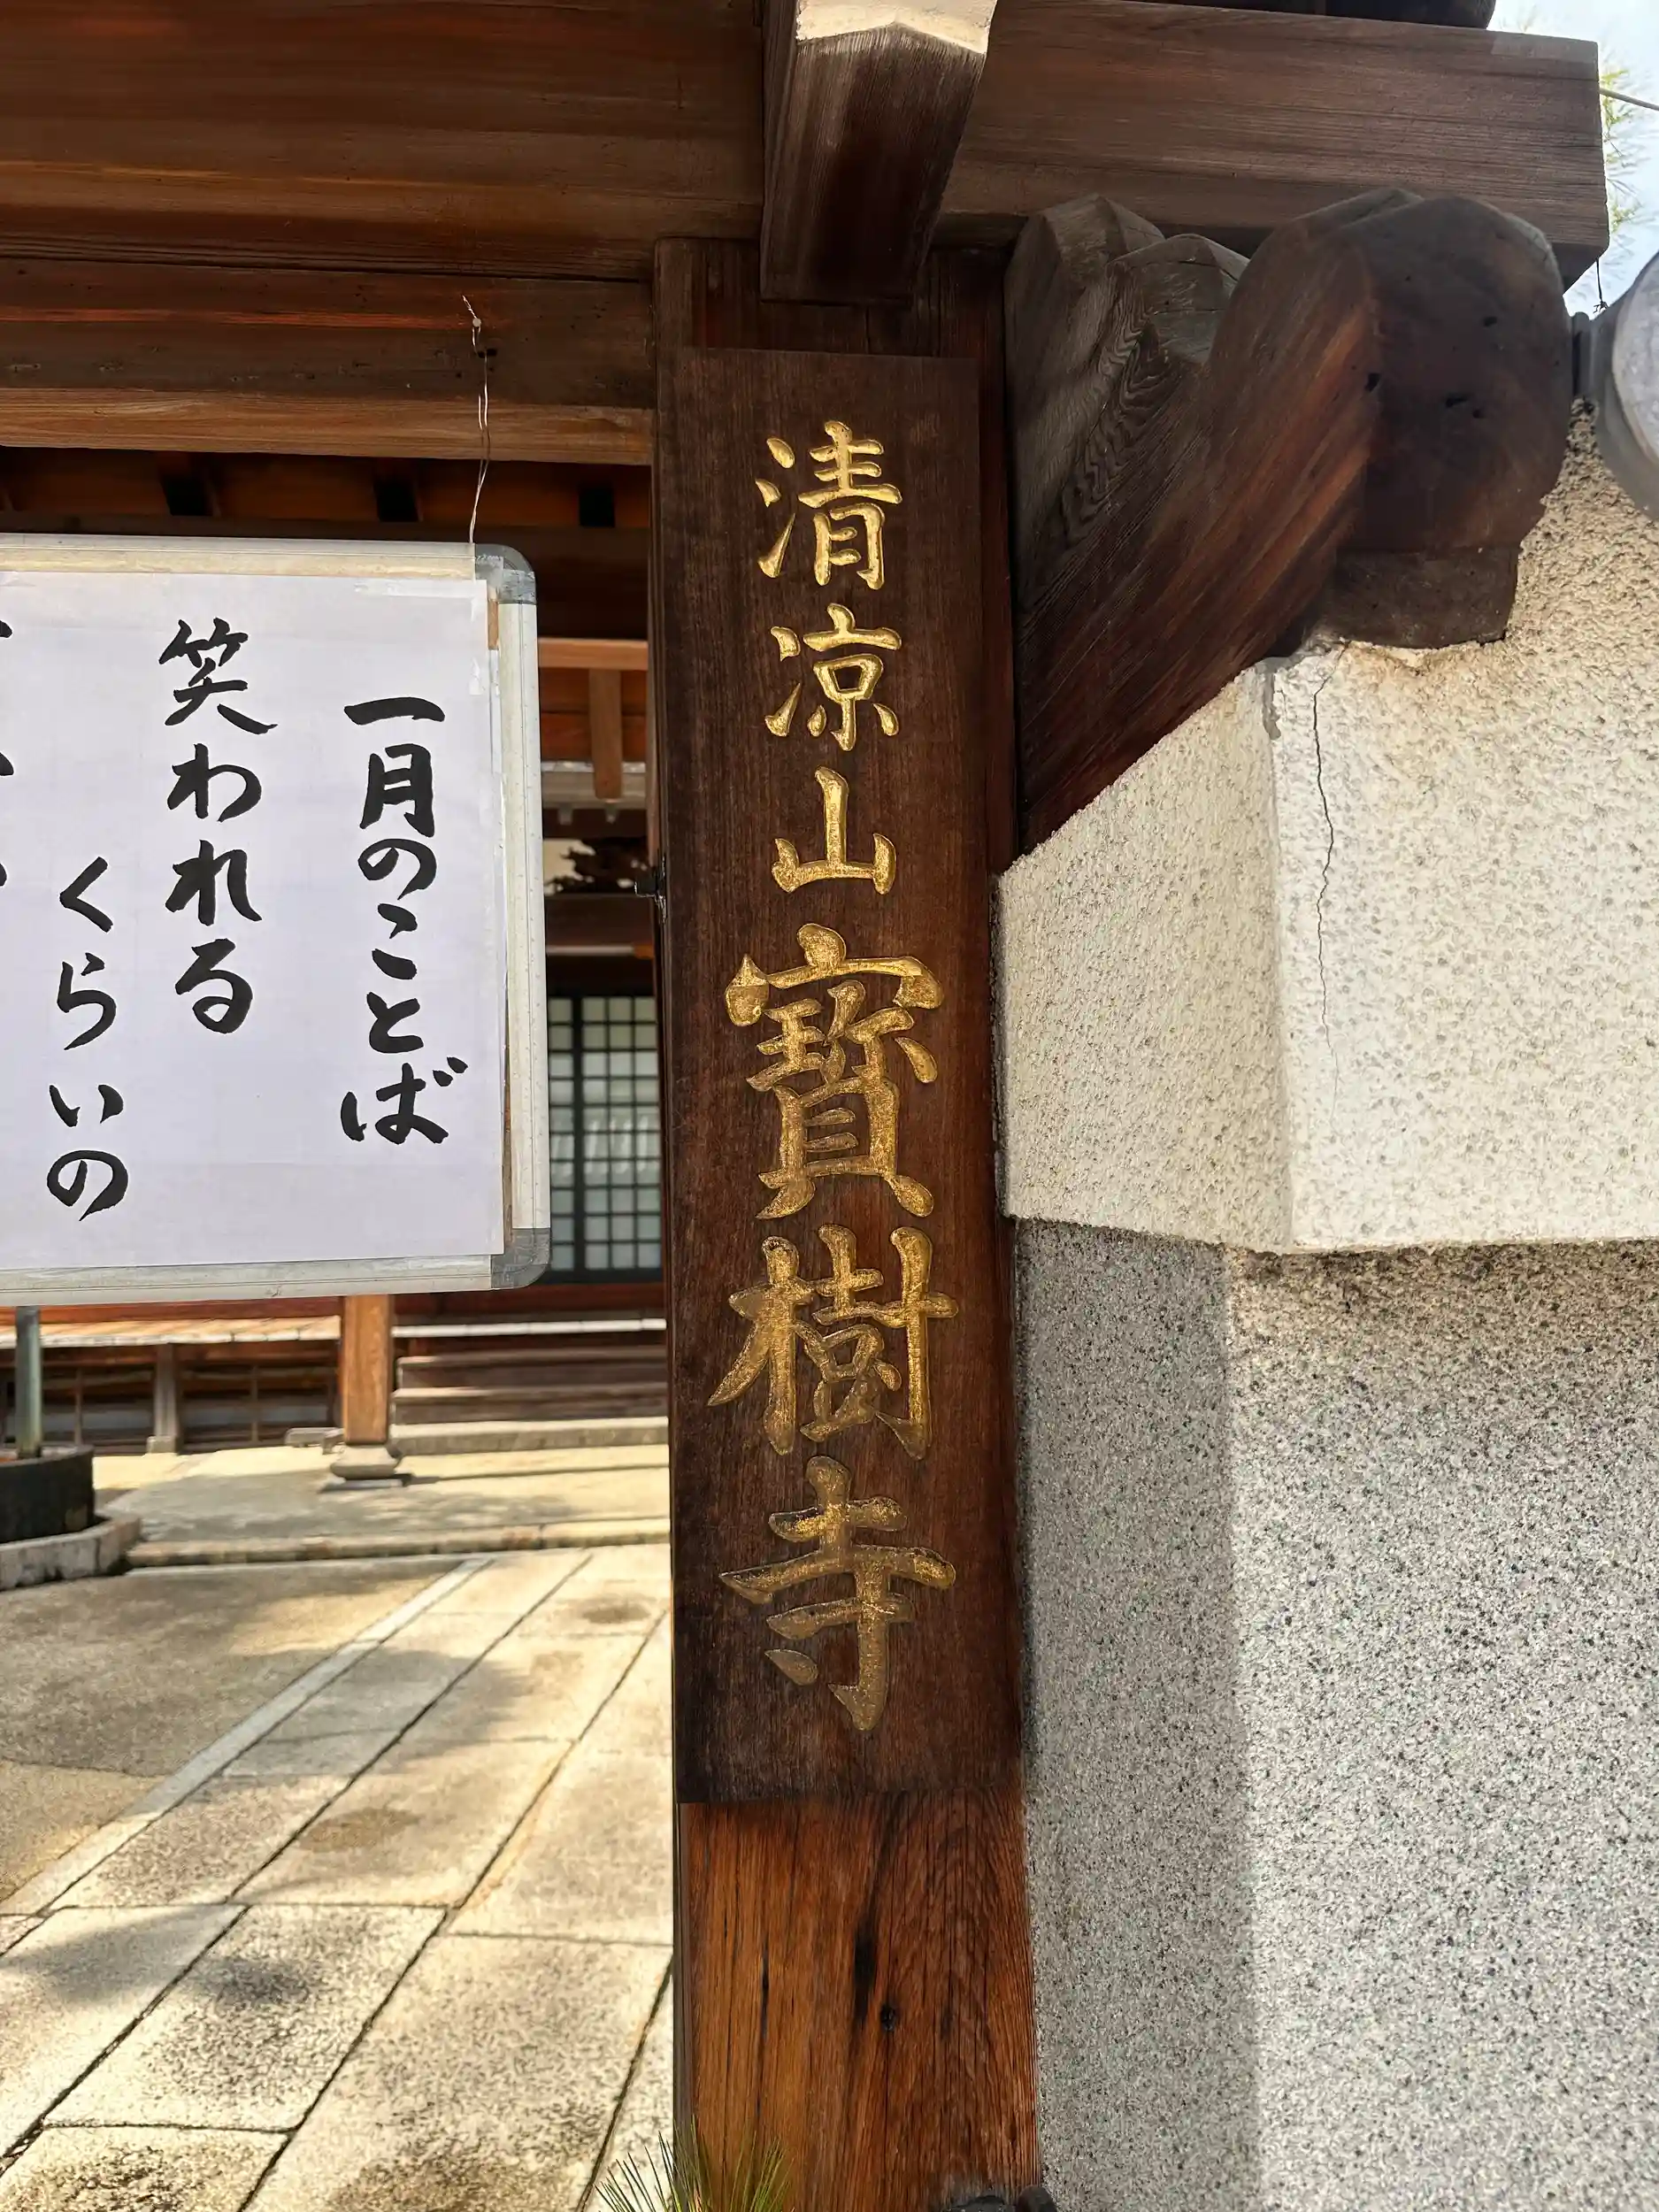 清凉山寶樹寺
一月のことば
笑われる
くらいの